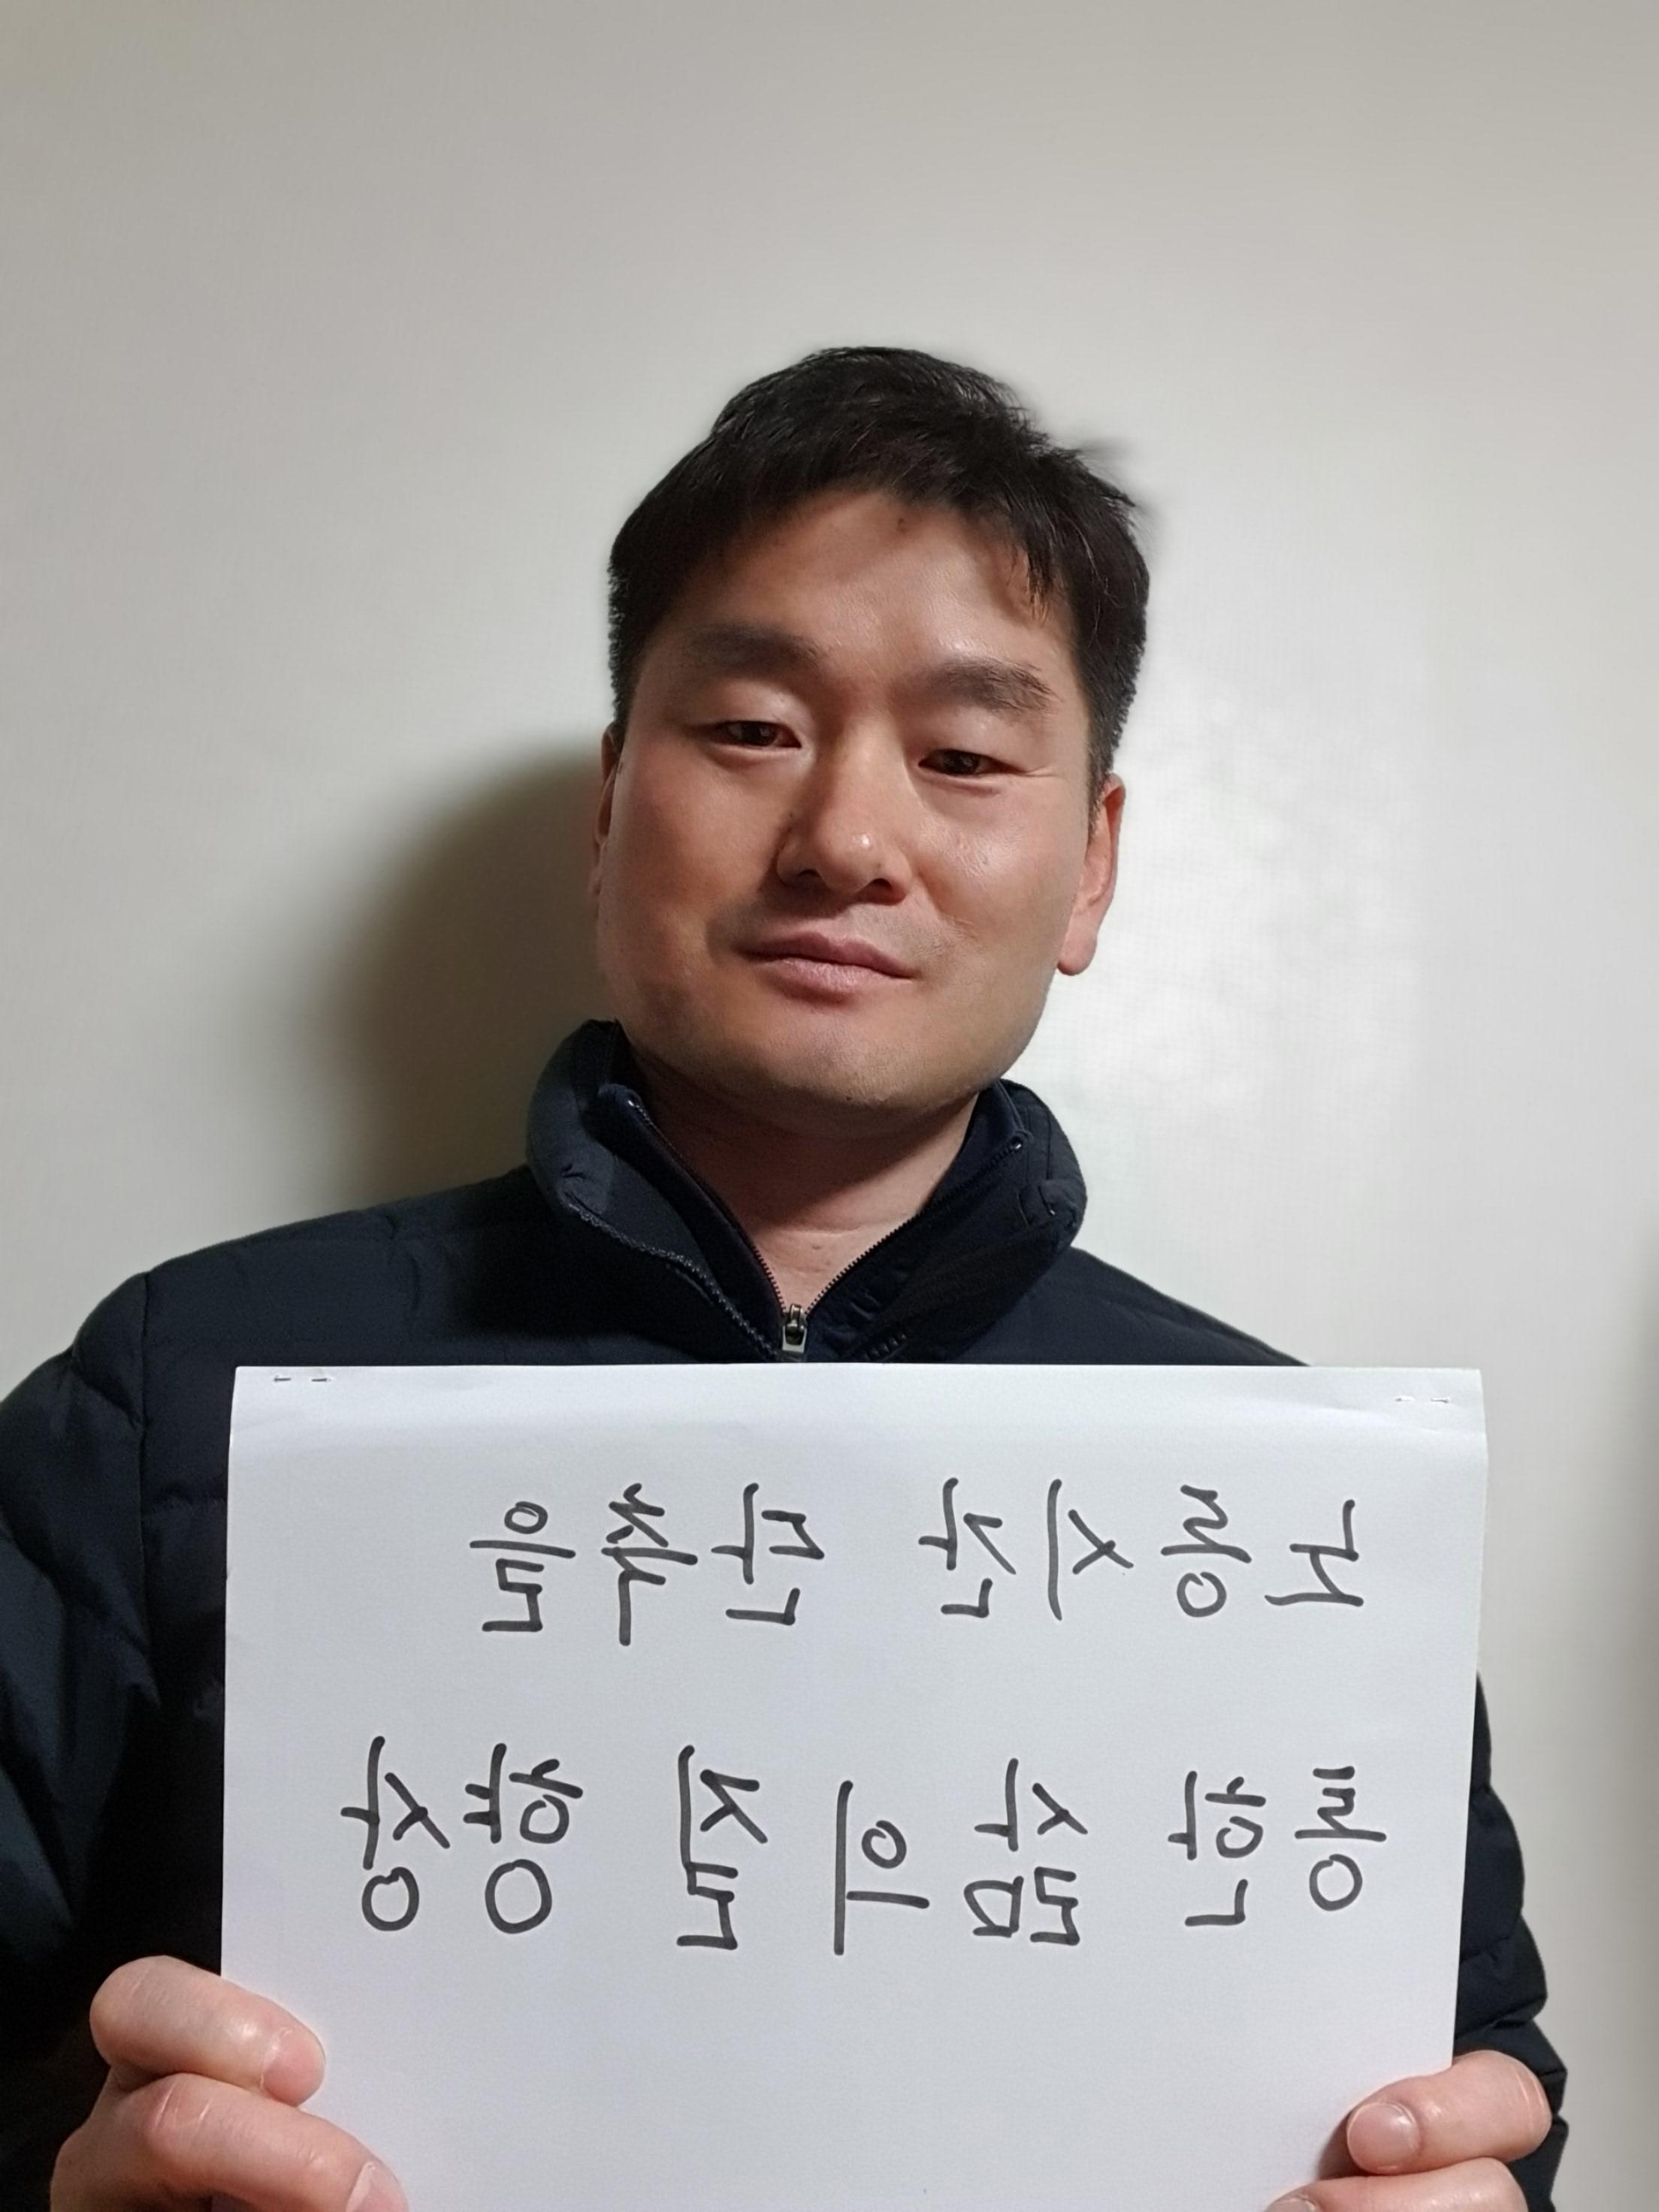 노동시간 단축을
통한 삶의 질 향상